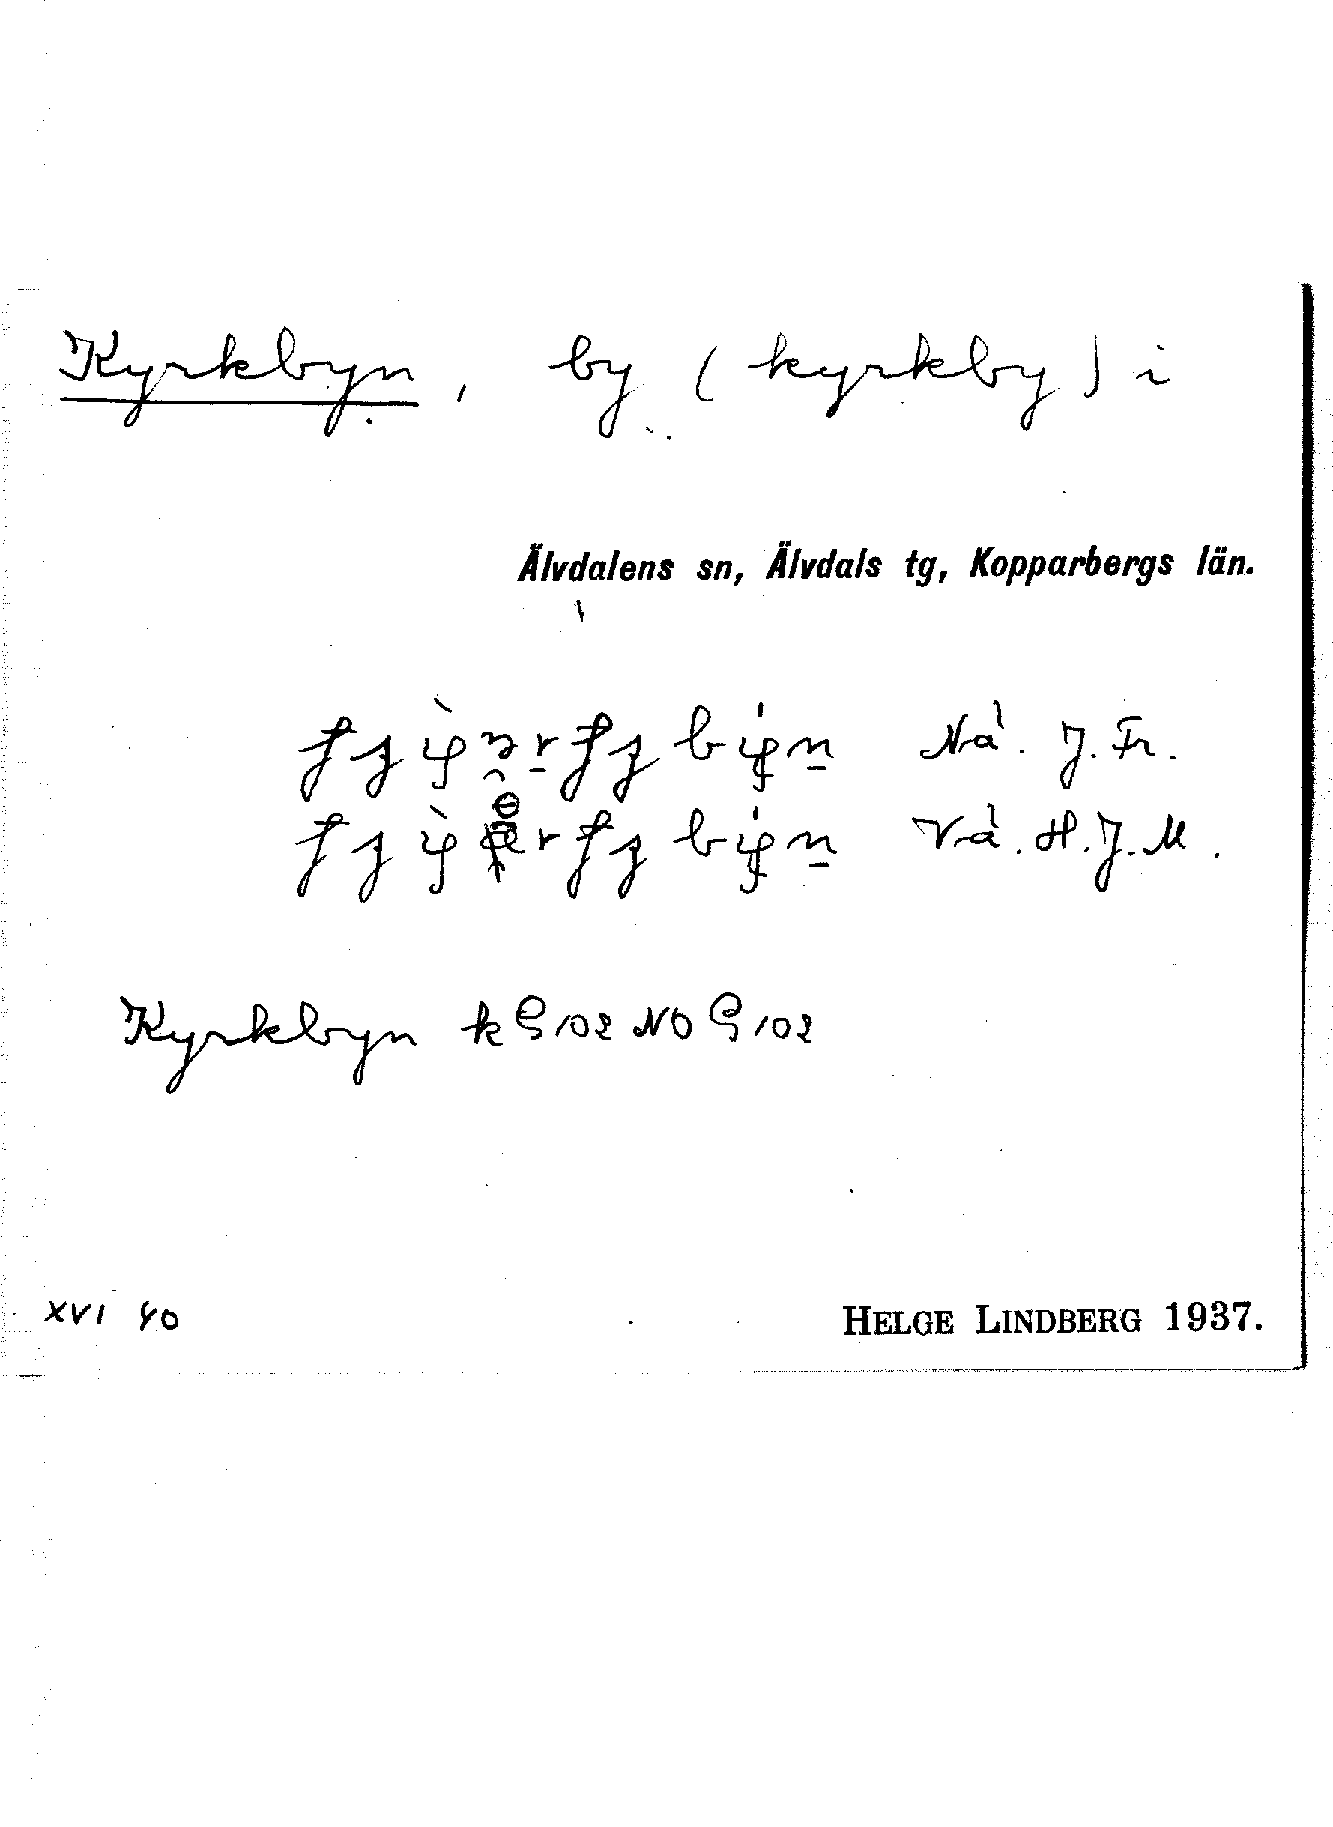 Kyrkbyn, by (kyrkby) i
Älvdalens sn, Älvdals tg, Kopparbergs län.
Nà. J. Fr.
Và. H. J. M.
Kyrkbyn k G 102 NO G 102
XVI 40
HELGE LINDBERG 1937.